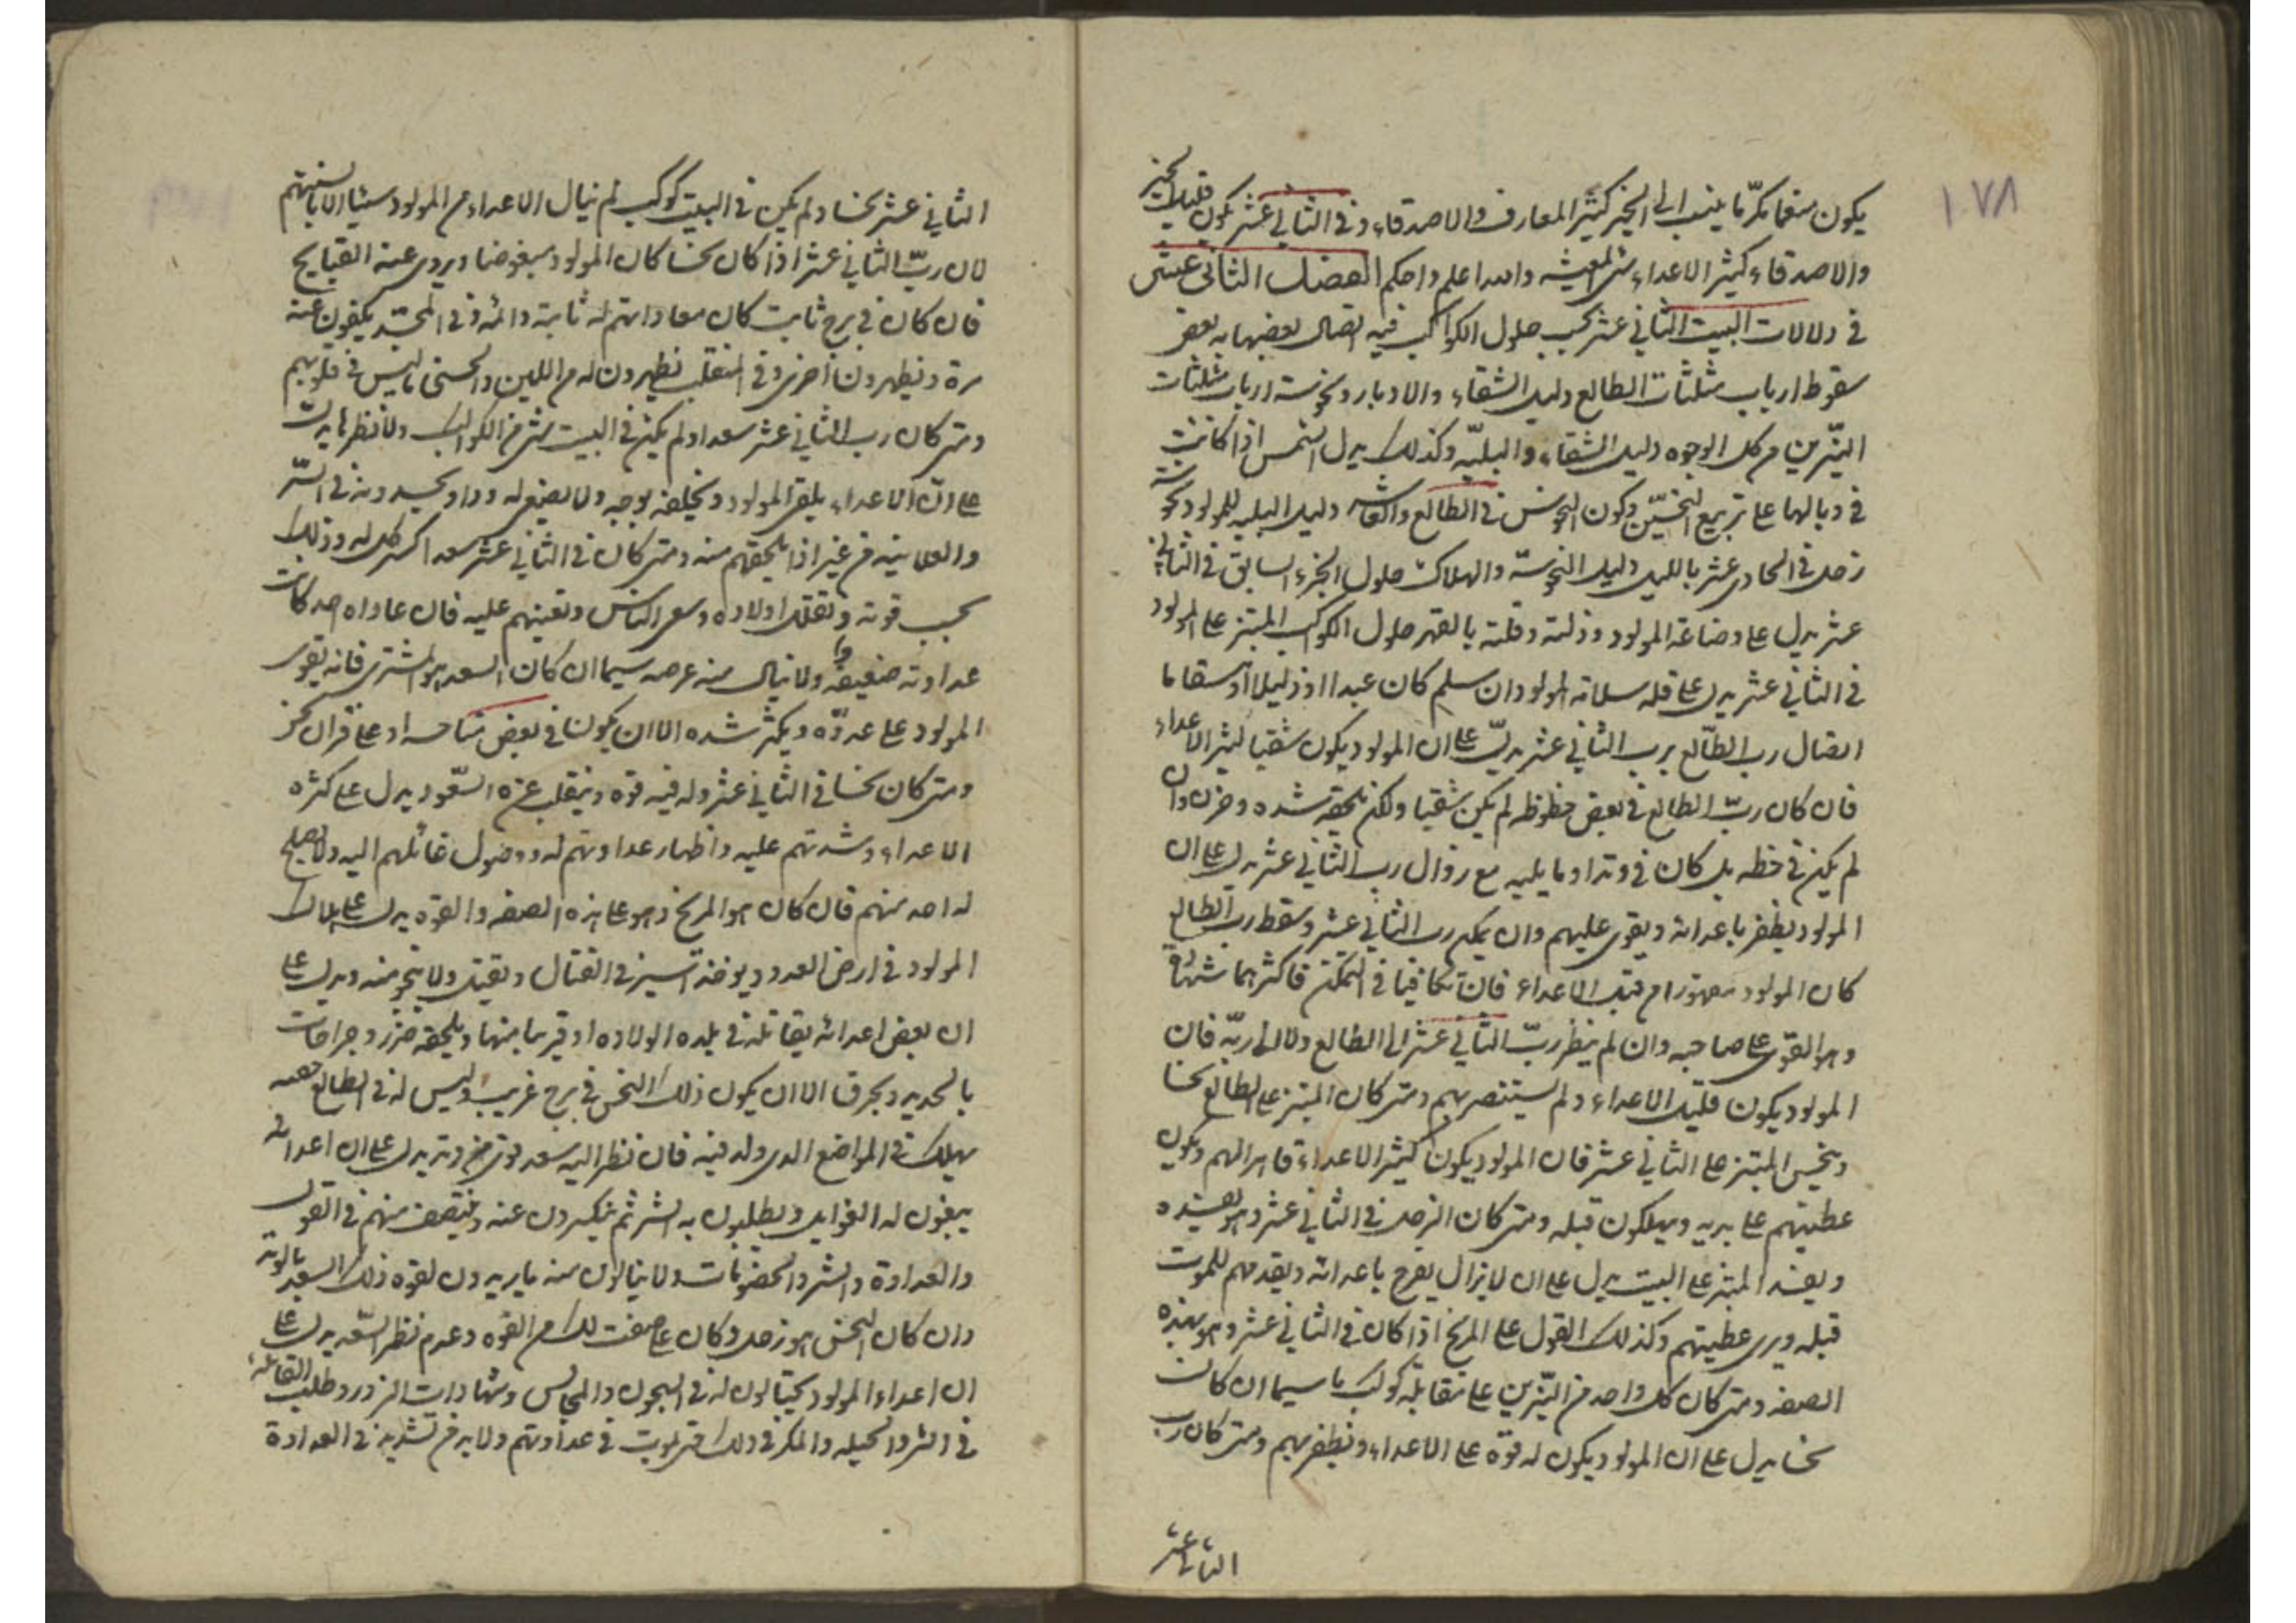 ١٠٧٨
يكون منعما مكرّما ينسب الى الخير كثير المعارف والاصدقاء وفى الثانى عشر يكون قليل الخير
والاصدقاء كثير الاعداء سّئ المعيشه والله اعلم واحكم الفصل الثانى عشر
فى دلالات البيت الثانى عشر بحسب حلول الكواكب فيه اتصال بعضها به بعض
سقوط ارباب مثلثات الطالع دليل الشقاء والادبار ونحوسة ارباب مثلثات
النيّرين من كل الوجوه دليل الشقاء والبليّه وكذلك يدل الشمس اذا كانت
فى وبالها على تربيع النحسّين وكون النحوس فى الطالع والعاشر دليل البليه للمولود
زحل فى الحادى عشر بالليل دليل النحوسة والهلاك حلول الجزء السابق فى الثانى
عشر يدل على وضاعة المولود وذلته وقلته بالقهر حلول الكواكب المبتز على المولود
فى الثانى عشر يدل على قله سلامة المولود وان سلم كان عبدا او ذليلا او سقاما
اتصال رب الطّالع برب الثانى عشر يدلّ على ان المولود يكون شقيا كثير الاعداء
فان كان ربّ الطالع فى بعض حظوظه لم يكن شقيا ولكن يلحقه شده وحزن وان
لم يكن فى حظه بل كان فى وتد او ما يليه مع زوال رب الثانى عشر يدل على ان
المولود يظفر باعدائه ويقوى عليهم وان تمكن رب الثانى عشر وسقط رب الطالع
كان المولود مقهورا من قبل الاعداء فان تكافيا فى التمكّن فاكثرهما شهادة
وهو القوّى على صاحبه وان لم ينظر ربّ الثانى عشر الى الطالع ولا الى ربّه فان
المولود يكون قليل الاعداء ولم يستنصر بهم ومتى كان المبتز على الطالع نحسا
وينحس المبتز على الثانى عشر فان المولود يكون كثير الاعداء قاهرا لهم ويكون
عطبهم على يديه ويهلكون قبله ومتى كان الزحل فى الثانى عشر وهو يفسده
ويفسد المبتز على البيت يدل على ان لا يزال يفرح باعدائه ويقدمهم للموت
قبله ويرى عطبهم وكذلك القول على المريخ اذا كان فى الثانى عشر وهو بهذه
الصفه ومتى كان كل واحد من النيّرين على مقابلة كوكب ما سيما ان كانت
نحسا يدل على ان المولود يكون له قوة على الاعداء ويظفر بهم ومتى كان رب
الثانى عشر
الثانى عشر نحسا ولم يكن فى البيت كوكب لم ينال الاعداء من المولود شيئا الا بالسنتهم
لان ربّ الثانى عشر اذا كان نحسا كان المولود مبغوضا ويروى عنه القبايح
فان كان فى برج ثابت كان معاداتهم له ثابتة دائمه وفى المجسّد يكفون عنه
مرة ويظهرون اخرى وفى المنقلب يظهرون له من اللين والحسنى ما ليس فى قلوبهم
ومتى كان رب الثانى عشر سعدا ولم يكن فى البيت شئ من الكواكب ولا نظرها يدلّ
على انّ الاعداء يلقى المولود ويخلفه بوجه ولا يصفى له ودا ويحسدونه فى السّر
والعلانيه من غير اذا يلحقهم منه ومتى كان فى الثانى عشر سعد اكثر كل له وذلك
بحسب قوته وتقلل اولاده وسعى الناس وتعينهم عليه فان عاداه احد كانت
عداوته ضعيفة ولا ينال منه غرضه سيما ان كان السعد هو المشترى فانه يقوى
المولود على عدوّه ويكثر شده الا ان يكونا فى بعض مناحسه او على قران نحس
ومتى كان نحسا فى الثانى عشر وله فيه قوه وينقلب عنه السّعود يدل على كثره
الاعداء وشدتهم عليه واظهار عداوتهم له ووصول غائلهم اليه ولا يصلح
له احد منهم فان كان هو المريخ وهو على هذه الصفه والقوه يدل على هلاك
المولود فى ارض العدو ويوخذ اسير فى القتال ويقتل ولا ينجو منه ويدل على
ان بعض اعدائه يقاتله فى بلده الولاده او قريبا منها ويلحقه ضرر وجراحات
بالحديد ويحرق الا ان يكون ذلك النحس فى برج غريب وليس له فى الطالع حصه
يهلك فى المواضع الذى ولد فيه فان نظر اليه سعد قوى من وتد يدل على ان اعدائه
يبغون له الغوايل ويطلبون به الشر ثم ينكسرون عنه وينتصف منهم فى القول
والعداوة والشر والخصومات ولا ينالون منه ما يريدون لقوه ذلك السعد بالوتد
وان كان النحس هو زحل وكان على صفت لك من القوه وعدم نظر السّعد يدل على
ان اعداء المولود يحتالون له فى السجون والمجالس وشهادات الزور وطلب الغائله
فى الشر والحيله والمكر فى ذلك فى عداوتهم ولا بد من شديد فى العداوة